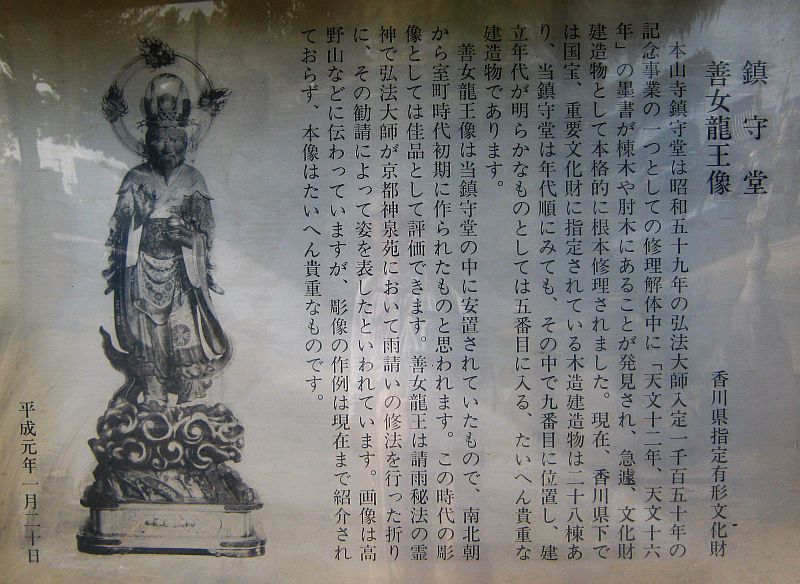 鎮守堂
善女龍王像
香川県指定有形文化財
本山寺鎮守堂は昭和五十九年の弘法大師入定一千百五十年の
記念事業の一つとしての修理解体中に「天文十二年、天文十六
年」の墨書が棟木や肘木にあることが発見され、急遽、文化財
建造物として本格的に根本修理されました。現在、香川県下で
は国宝、重要文化財に指定されている木造建造物は二十八棟あ
り、当鎮守堂は年代順にみても、その中で九番目に位置し、建
立年代が明らかなものとしては五番目に入る、たいへん貴重な
建造物であります。
善女龍王像は当鎮守堂の中に安置されていたもので、南北朝
から室町時代初期に作られたものと思われます。この時代の彫
像としては佳品として評価できます。善女龍王は請雨秘法の霊
神で弘法大師が京都神泉苑において雨請いの修法を行った折り
に、その勧請によって姿を表したといわれています。画像は高
野山などに伝わっていますが、彫像の作例は現在まで紹介され
ておらず、本像はたいへん貴重なものです。
平成元年一月二十日